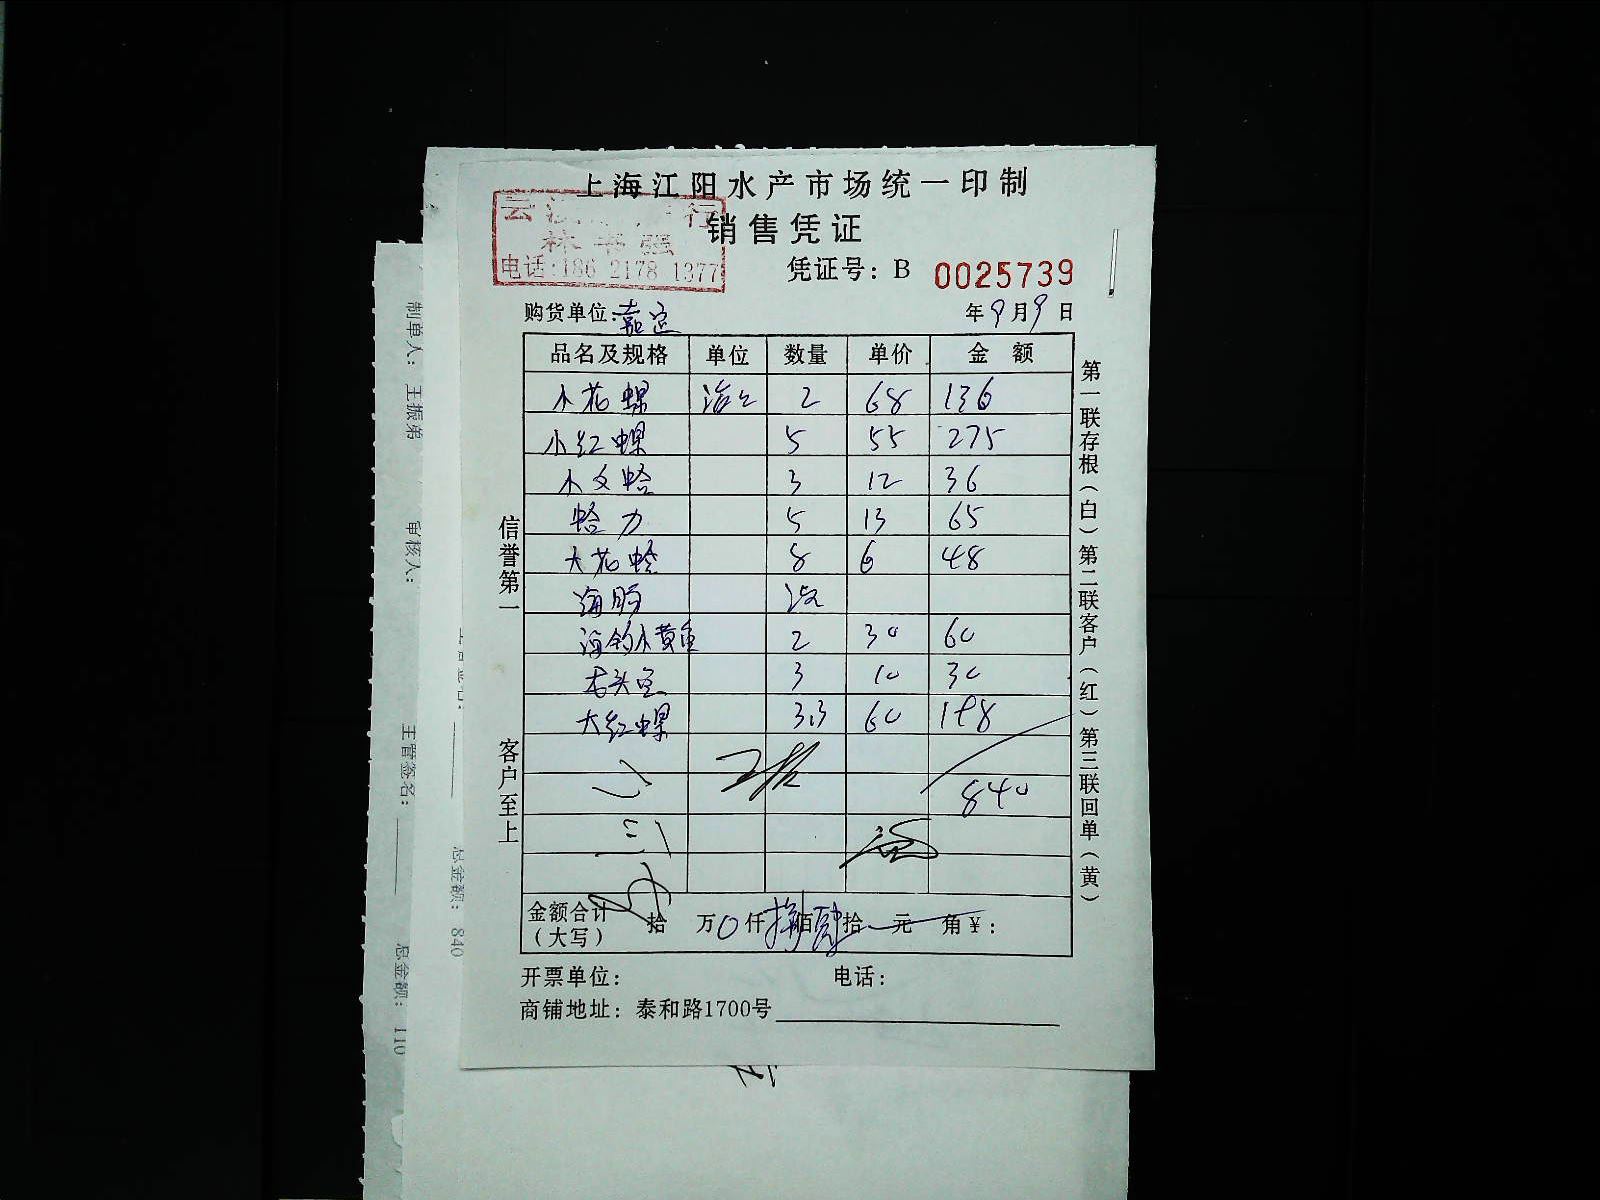 上海江阳水产市场统一印制
销售凭证
电话:186 2178 1377
凭证号: B 0025739
购货单位: 嘉定
年9月9日
品名及规格 单位 数量 单价 金额
小花螺 2 68 136
小红螺 5 55 275
小文蛤 3 12 36
蛤力 5 13 65
大花蛤 8 6 48
海肠
海钓小黄鱼 2 30 60
3 10 30
大红螺 3.3 60 198
840
金额合计（大写） 拾 万0仟捌佰肆拾 元 角￥:
开票单位:
电话:
商铺地址: 泰和路1700号
信誉第一
客户至上
第一联存根(白)第二联客户(红)第三联回单(黄)
制单人: 王振弟
审核人:
主管签名:
总金额: 840
总金额: 110